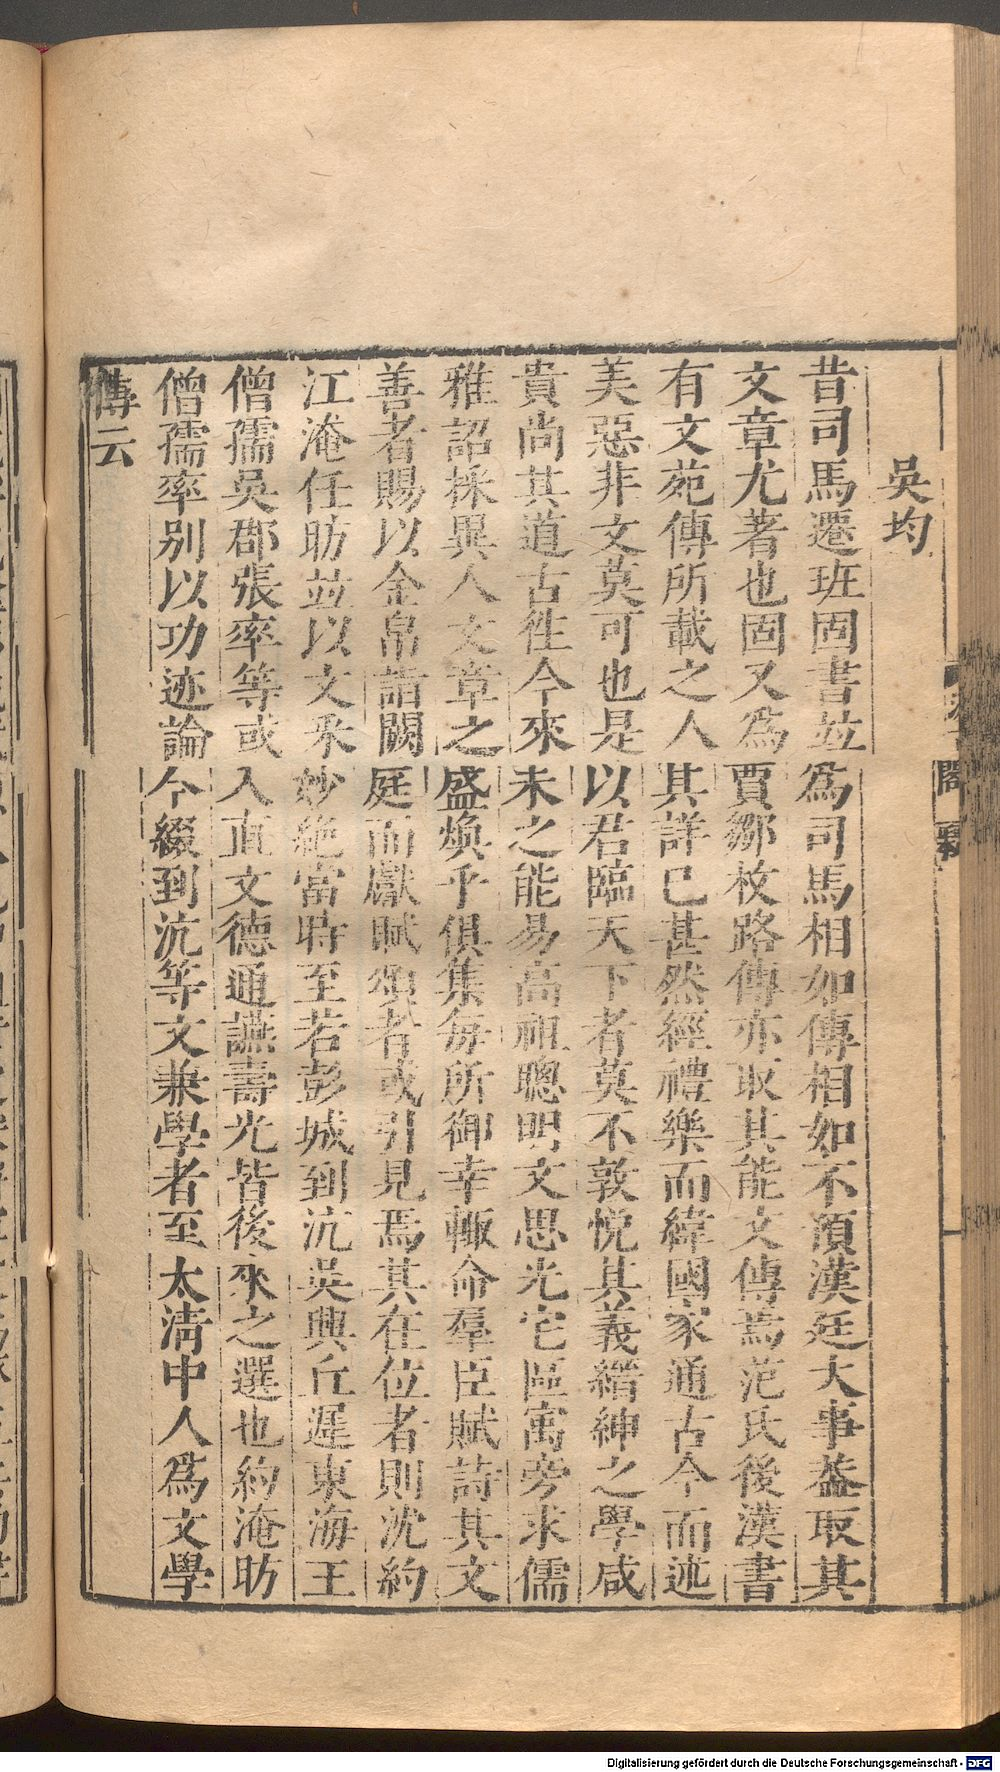 吳均
昔司馬遷班固書並爲司馬相如傳相如不預漢廷大事葢取其
文章尤著也固又爲賈鄒枚路傳亦取其能文傳焉范氏後漢書
有文苑傳所載之人其詳已甚然經禮樂而緯國家通古今而述
美惡非文莫可也是以君臨天下者莫不敦悅其義縉紳之學咸
貴尚其道古徃今來未之能易高祖聰明文思光宅區寓旁求儒
雅詔採異人文章之盛煥乎俱集每所御幸輙命羣臣賦詩其文
善者賜以金帛詣闕庭而獻賦頌者或引見焉其在位者則沈約
江淹任昉並以文釆妙絶當時至若彭城到沆吳興丘遲東海王
僧孺吳郡張率等或入直文德通讌壽光皆後來之選也約淹昉
僧孺率别以功迹論今綴到沆等文兼學者至太清中人爲文學
傳云
Digitalisierung gefördert durch die Deutsche Forschungsgemeinschaft - DFG